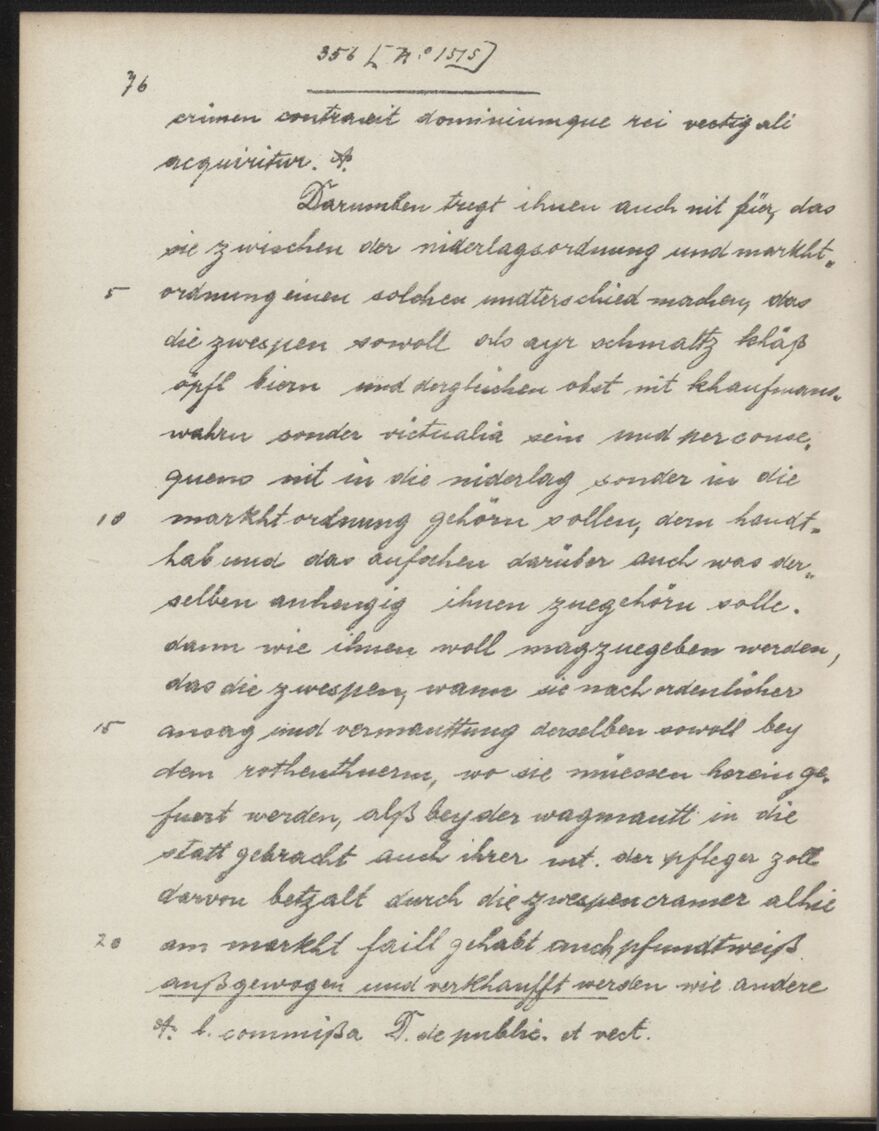 356 [N.o 1515]
76
crimen contraxit dominiumque rei vectigali
acquiritur. A.
Darumben tregt ihnen auch nit für, das
sie zwischen der niderlagsordnung und markht-
5 ordnung einen solchen undterschied machen, das
die zwespen sowoll als ayr schmaltz khäß
öpfl biern und dergleichen obst nit khaufmans-
wahrn sonder victualia sein und per conse-
quens nit in die niderlag sonder in die
10 markhtordnung gehörn sollen, dern handt-
hab und das aufsehen darüber auch was der-
selben anhengig ihnen zuegehörn solle.
dann wie ihnen woll mag zuegeben werden,
das die zwespen, wann sie nach ordenlicher
15 ansag und vermauttung derselben sowoll bey
dem rothenthuerm, wo sie müessen herein ge-
fuert werden, alß bey der wagmautt in die
statt gebracht auch ihrer mt. der pfleger zoll
darvon betzalt durch die zwespencramer alhie
20 am markht faill gehabt auch pfundtweiß
außgewogen und verkhaufft werden wie andere
A. l. commißa D. de public. et vect.